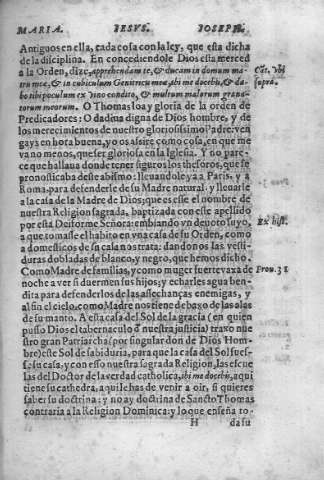 MARIA. IESVS. IOSEPH.
Antiguos en ella, cada cosa con la ley, que esta dicha
de la disciplina. En concediendole Dios esta merced
a la Orden, dize, apprehendam te, & ducam in domum ma-
tris meæ, & in cubiculum Genitricis meæ, ibi me docebis, & da-
bo tibi poculum ex vino condito, & mustum malorum grana-
torum meorum. O Thomas loa y gloria de la orden de
Predicadores: O dadiua digna de Dios hombre, y de
los merecimientos de nuestro gloriosissimo Padre: ven
gays en hora buena, yo os assire como cosa, en que me
va no menos, que ser gloriosa en la Iglesia. Y no pare-
ce que hallaua donde tener siguros los thesoros, que se
pronosticaba deste abismo: lleuandole ya a Paris, y a
Roma, para defenderle de su Madre natural, y lleuarle
a la casa de la Madre de Dios; que es esse el nombre de
nuestra Religion sagrada, baptizada con este apellido
por esta Deiforme Señora: embiando vn deuoto suyo,
a que tomasse el habito en vna casa de su Orden, como
a domesticos de su casa nos trata: dandonos las vesti-
duras dobladas de blanco, y negro, que hemos dicho.
Como Madre de familias, y como muger fuerte va xa de
noche a ver si duermen sus hijos; y echarles agua ben-
dita para defenderlos de las assechanças enemigas, y
al fin el cielo, como Madre nos tiene debaxo de las alas
de su manto. A esta casa del Sol de la gracia (en quien
pusso Dios el tabernaculo ò nuestra justicia) traxo nue
stro gran Patriarcha (por singular don de Dios Hom-
bre) este Sol de sabiduria, para que la casa del Sol fues-
se; su casa, y con esso nuestra sagrada Religion, las escue
las del Doctor de la verdad catholica, ibi me docebis, aqui
tiene su cathedra, aqui le has de venir a oir, si quieres
saber su doctrina: y no ay doctrina de Sancto Thomas
contraria a la Religion Dominica: y lo que enseña to-
H da su
Cãt. vbi
suprà.
Ex hist.
Prou. 31